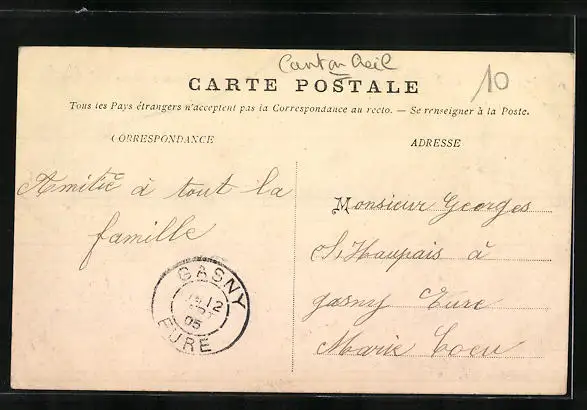 Canton Creil
10
CARTE POSTALE
Tous les Pays étrangers n'acceptent pas la Correspondance au recto. — Se renseigner à la Poste.
CORRESPONDANCE
ADRESSE
Amitié à tout la
famille
Monsieur Georges
à
gasny Eure
Marie
GASNY
12
05
EURE